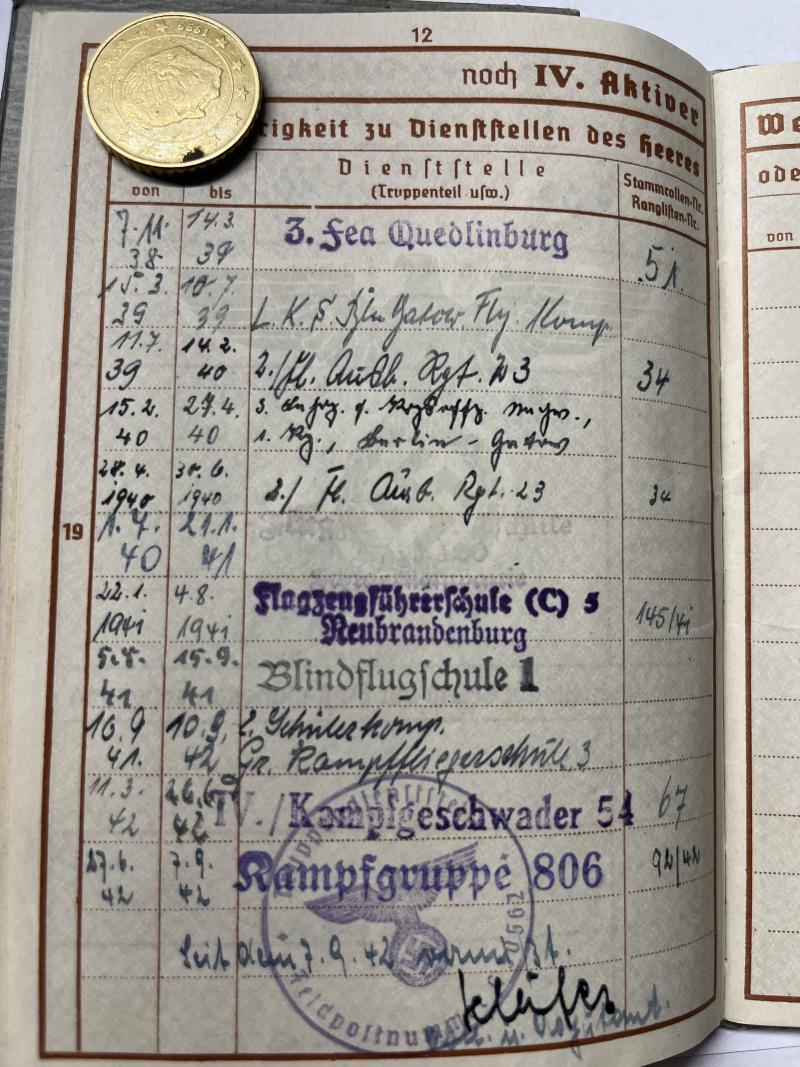 1999
12
noch IV. Aktiver
rigkeit zu Dienststellen des Heeres
von bis Dienststelle (Truppenteil usw.) Stammrollen-Nr. Ranglisten-Nr.
7.11. 38 14.3. 39 3. Fea Quedlinburg 51
15.3. 39 10.7. 39 L.K.S. Bln Gatow Flg. Komp.
11.7. 39 14.2. 40 2./Fl. Ausb. Rgt. 23 34
15.2. 40 27.4. 40 3. Lehrg. f. Nachw.,
1. Berlin-Gatow
28.4. 1940 30.6. 1940 2./ Fl. Ausb. Rgt. 23 34
19
1.7. 40 21.1. 41
22.1. 1941 4.8. 1941 Flugzeugführerschule (C) 5 145/41
Neubrandenburg
5.8. 41 15.9. 41 Blindflugschule 1
16.9 41. 10.9. 42 2. Schülerkomp.
Gr. Kampffliegerschule 3
11.3. 42 26.6. 42 IV./Kampfgeschwader 54 67
27.6. 42 7.9. 42 Kampfgruppe 806 92/42
Seit dem 7.9.42 vermißt.
Feldpostnum
u. Adjutant.
We
ode
von